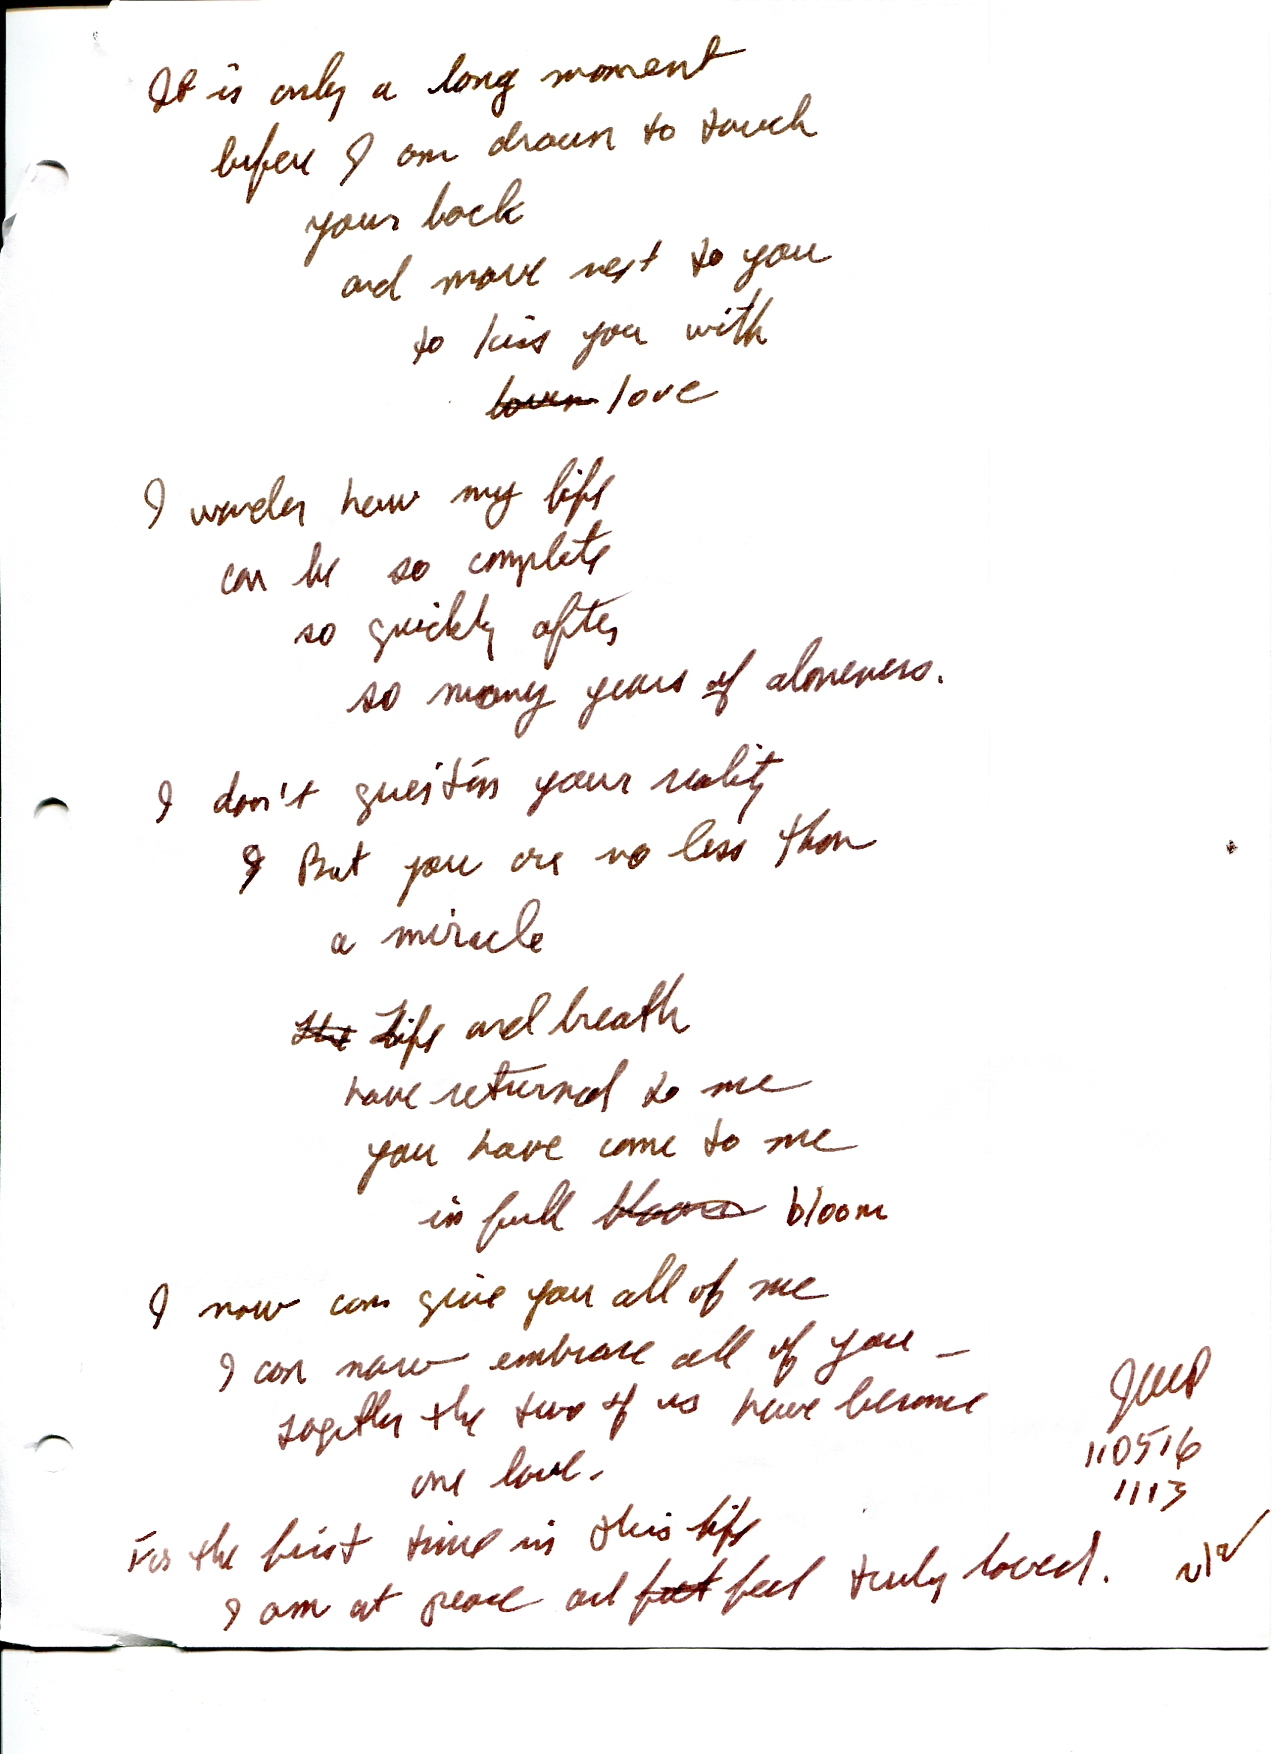 It is only a long moment
before I am drawn to touch
your back
and move next to you
to kiss you with
love
I wonder how my life
can be so complete
so quickly after
so many years of aloneness.
I don't question your reality
But you are no less than
a miracle
The Life and breath
have returned to me
you have come to me
in full bloom bloom
I now can give you all of me
I can now embrace all of you —
together the two of us have become
one love.
For the first time in this life
I am at peace and feel truly loved.
110516
1113